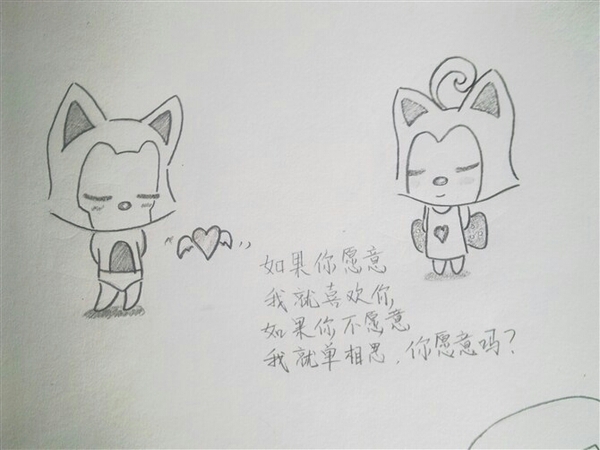 如果你愿意
我就喜欢你,
如果你不愿意
我就单相思,你愿意吗?